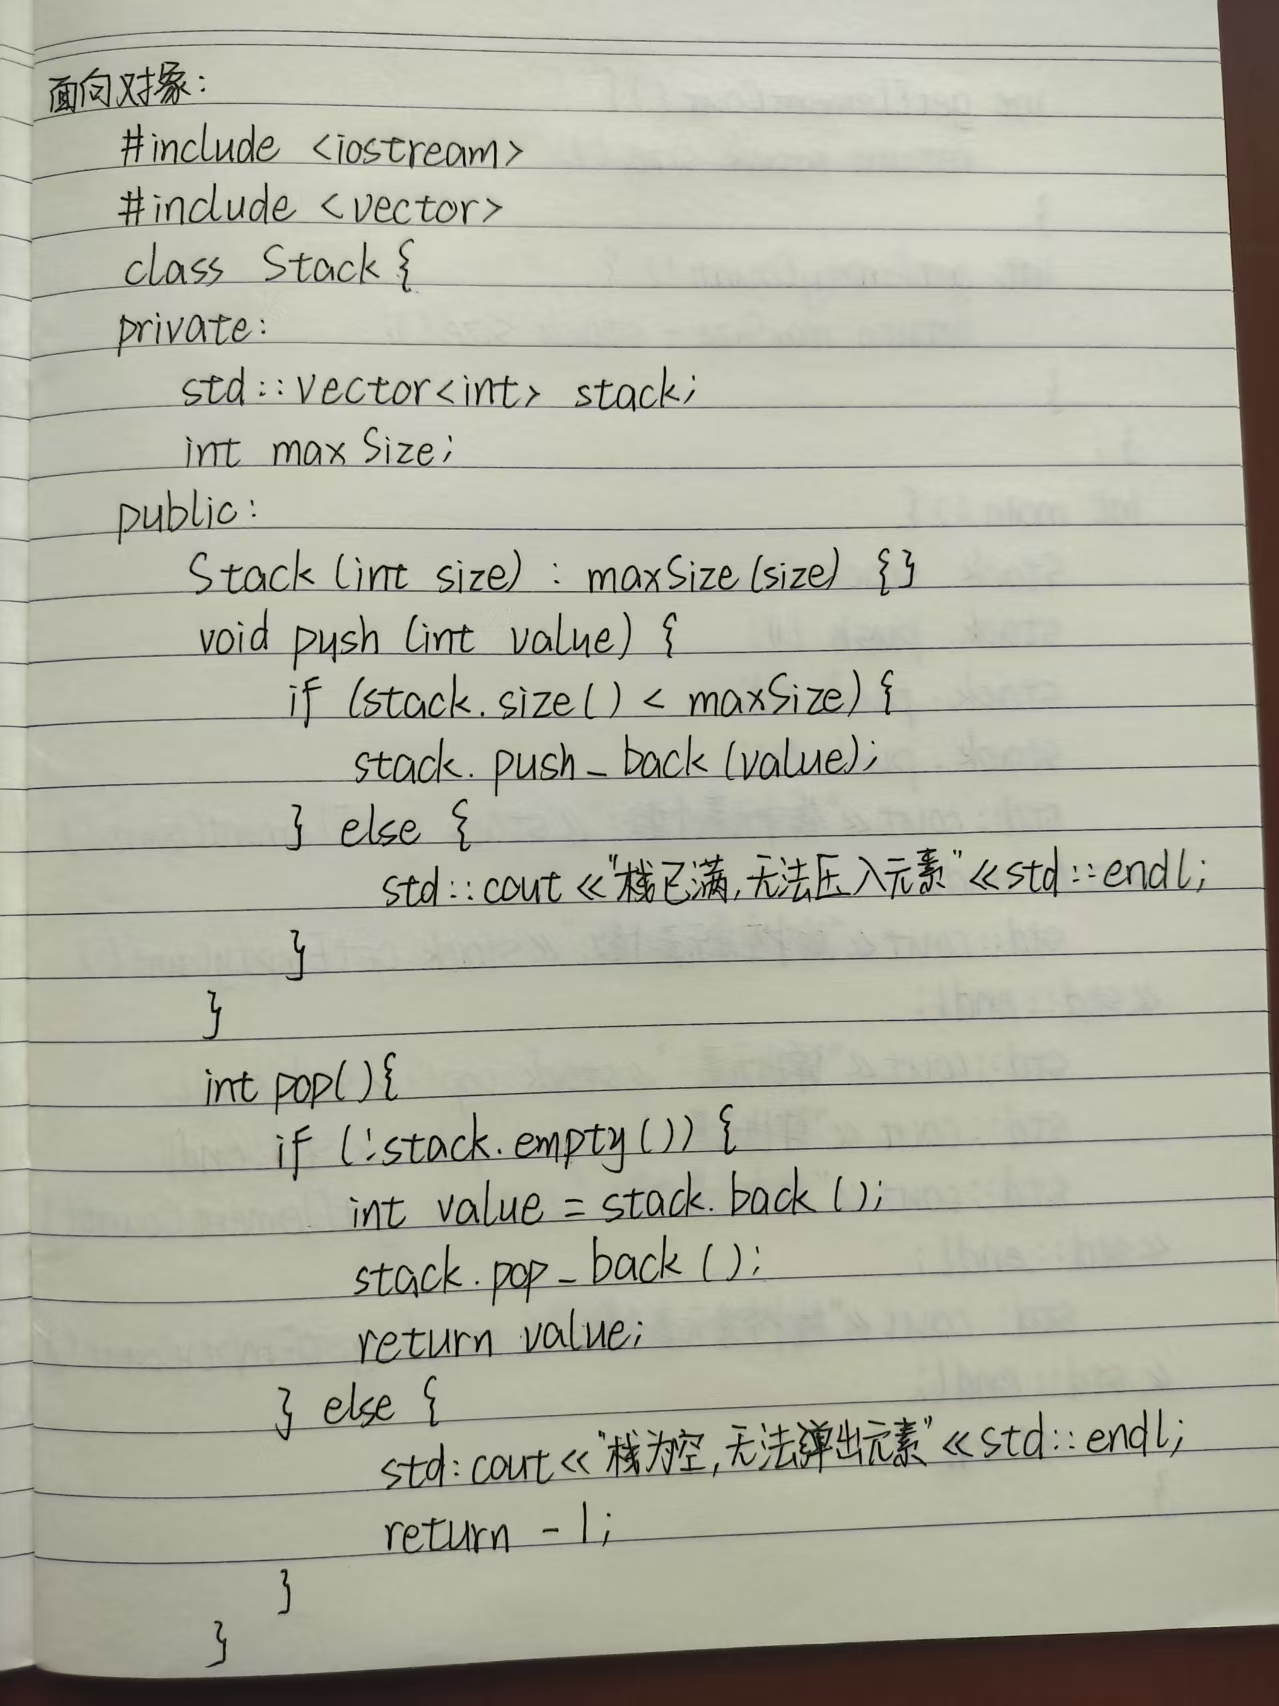 面向对象:
#include <iostream>
#include <vector>
class Stack {
private:
std::vector<int> stack;
int maxSize;
public:
Stack (int size) : maxSize (size) {}
void push (int value) {
if (stack.size() < maxSize) {
stack.push_back (value);
} else {
std::cout << "栈已满,无法压入元素" << std::endl;
}
}
int pop(){
if (!stack.empty()) {
int value = stack.back();
stack.pop_back();
return value;
} else {
std:cout << "栈为空,无法弹出元素" << std::endl;
return -1;
}
}